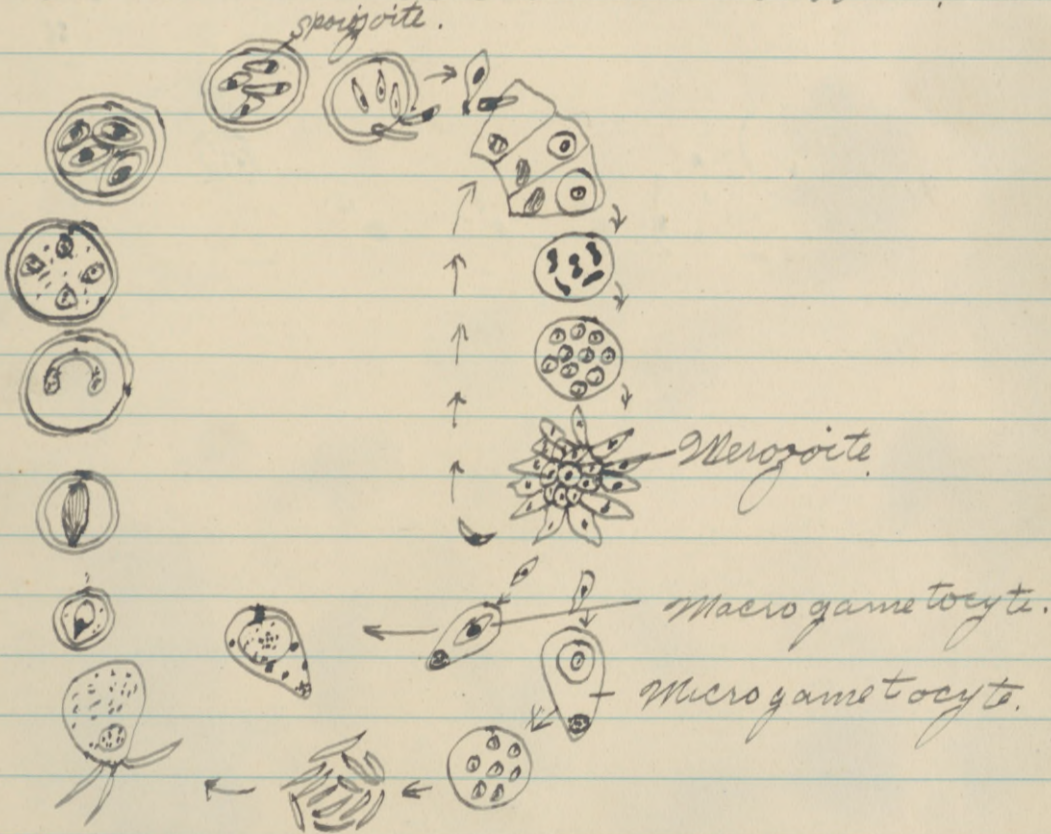 sporozoite.
Merozoite
Macrogametocyte.
Microgametocyte.